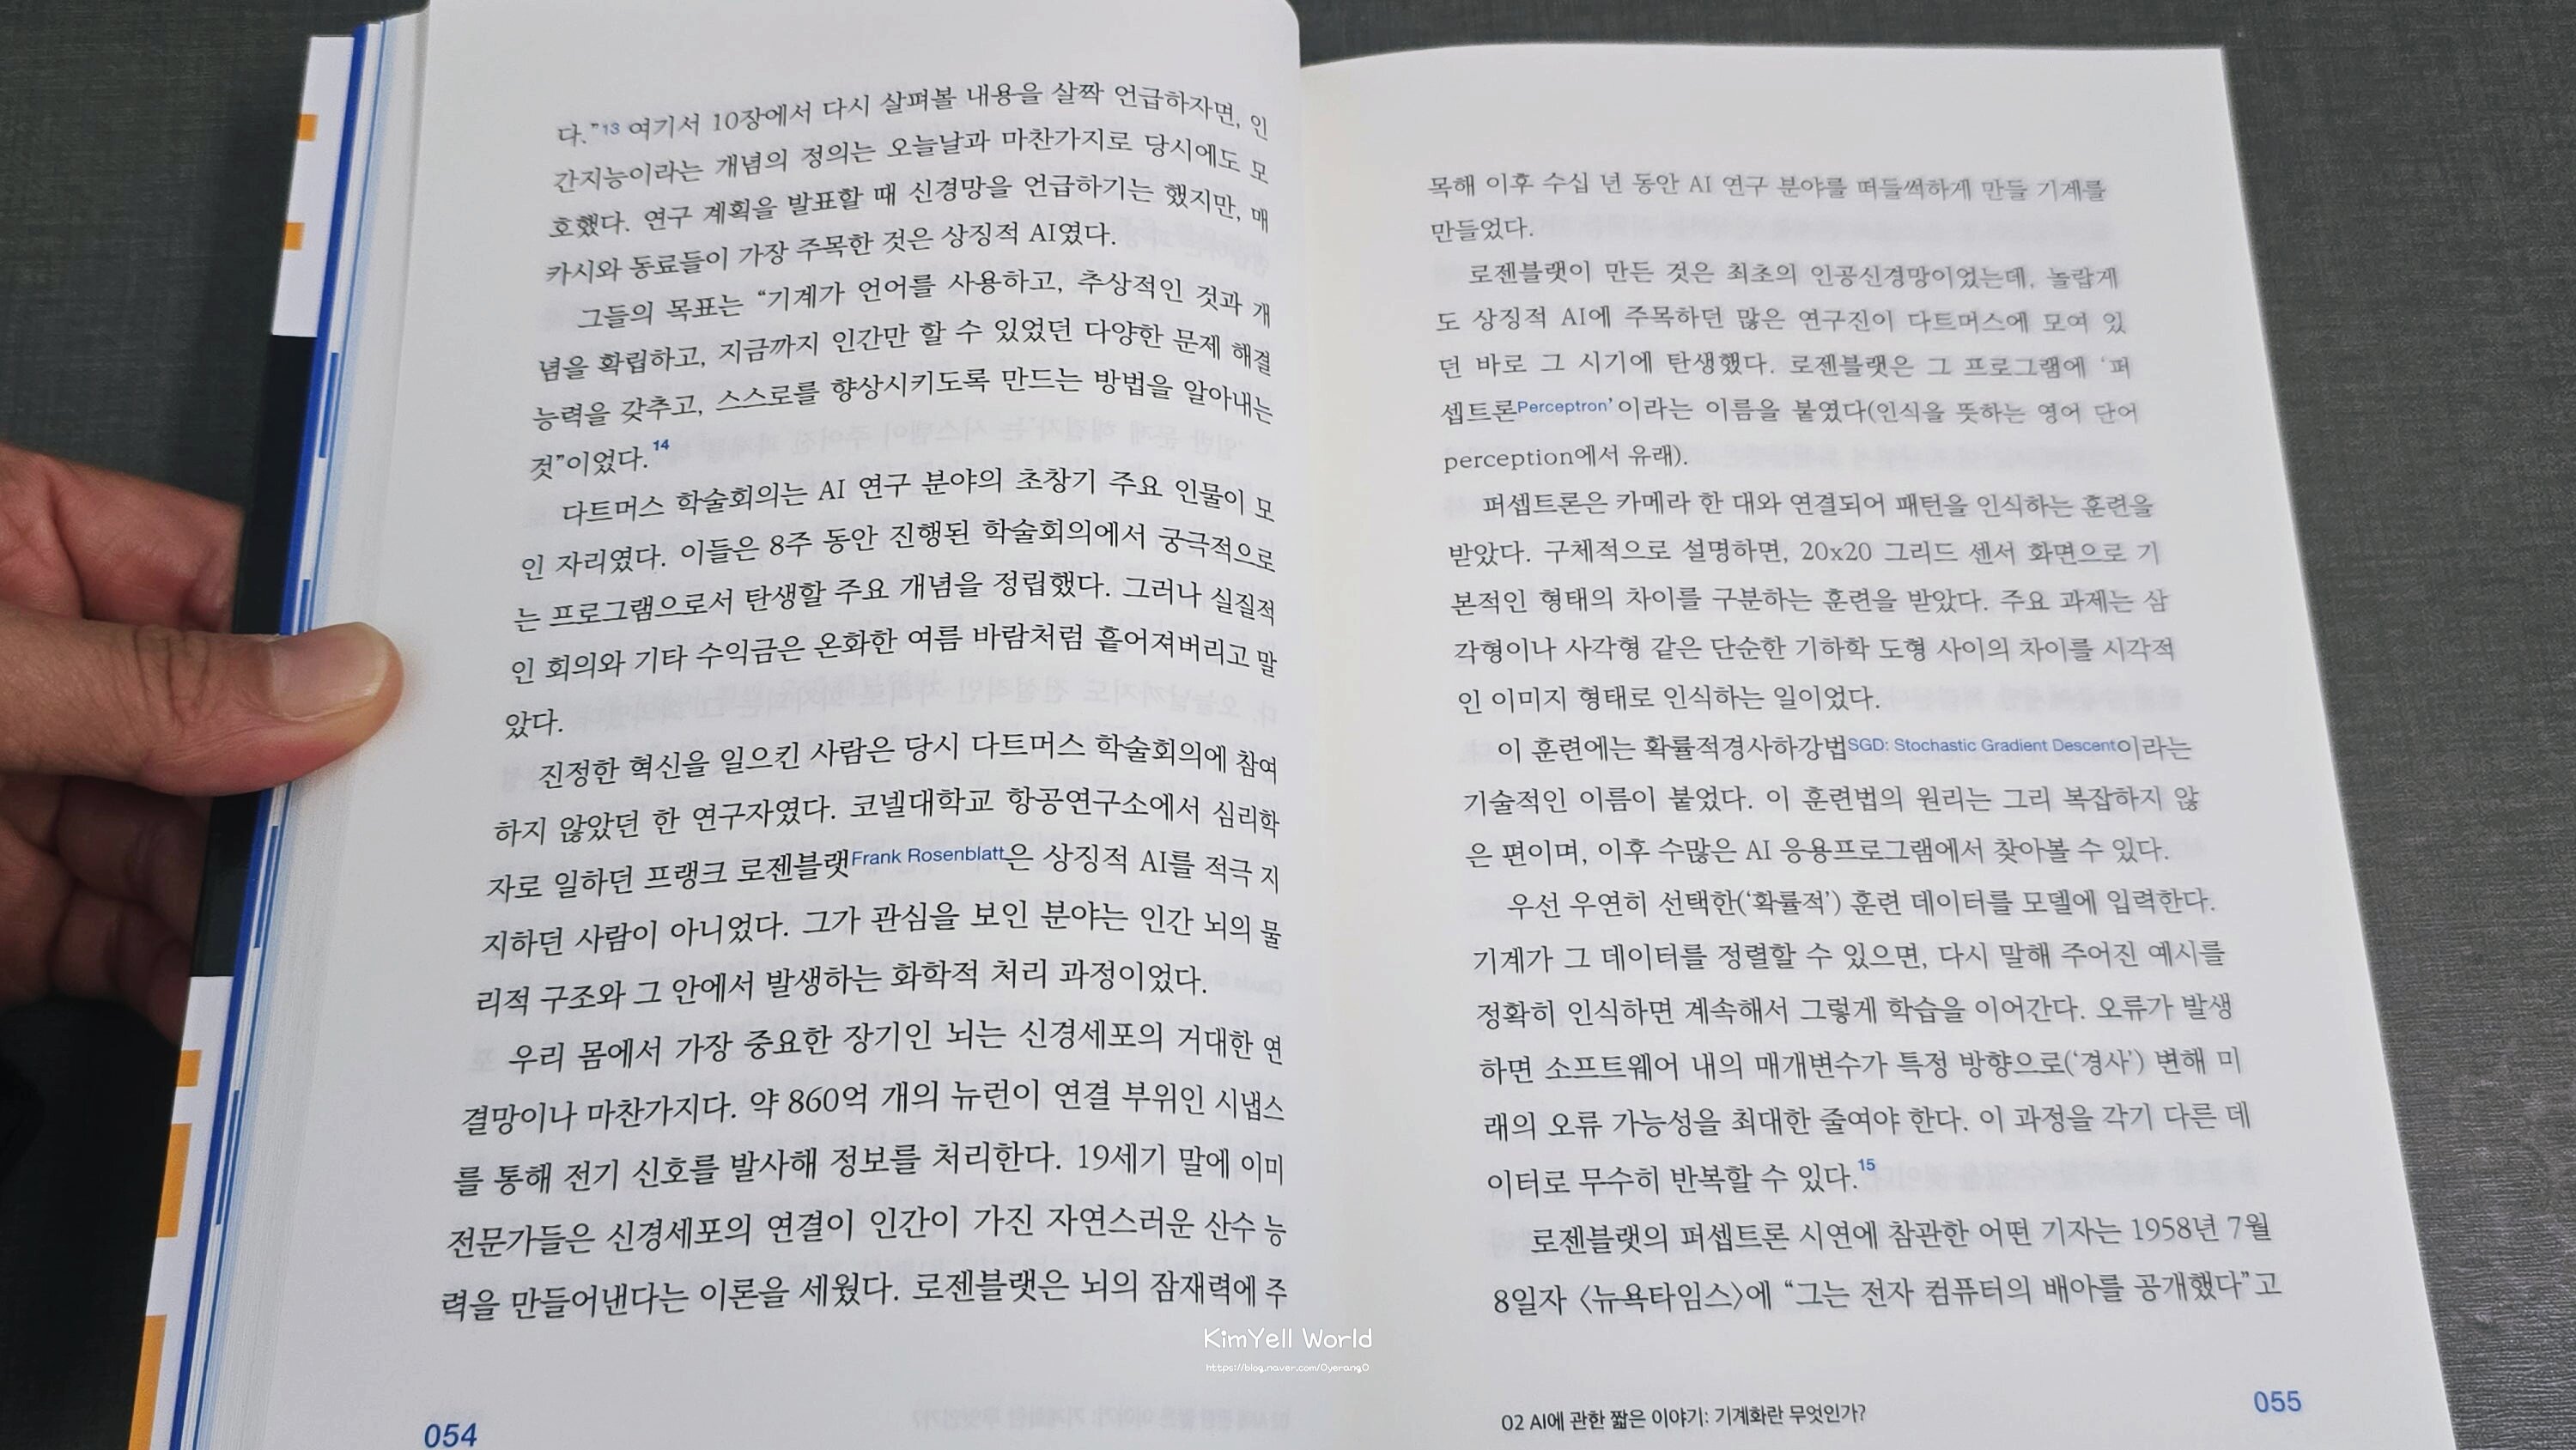 다.”13 여기서 10장에서 다시 살펴볼 내용을 살짝 언급하자면, 인
간지능이라는 개념의 정의는 오늘날과 마찬가지로 당시에도 모
호했다. 연구 계획을 발표할 때 신경망을 언급하기는 했지만, 매
카시와 동료들이 가장 주목한 것은 상징적 AI였다.
그들의 목표는 “기계가 언어를 사용하고, 추상적인 것과 개
념을 확립하고, 지금까지 인간만 할 수 있었던 다양한 문제 해결
능력을 갖추고, 스스로를 향상시키도록 만드는 방법을 알아내는
것”이었다.14
다트머스 학술회의는 AI 연구 분야의 초창기 주요 인물이 모
인 자리였다. 이들은 8주 동안 진행된 학술회의에서 궁극적으로
는 프로그램으로서 탄생할 주요 개념을 정립했다. 그러나 실질적
인 회의와 기타 수익금은 온화한 여름 바람처럼 흩어져버리고 말
았다.
진정한 혁신을 일으킨 사람은 당시 다트머스 학술회의에 참여
하지 않았던 한 연구자였다. 코넬대학교 항공연구소에서 심리학
자로 일하던 프랭크 로젠블랫Frank Rosenblatt은 상징적 AI를 적극 지
지하던 사람이 아니었다. 그가 관심을 보인 분야는 인간 뇌의 물
리적 구조와 그 안에서 발생하는 화학적 처리 과정이었다.
우리 몸에서 가장 중요한 장기인 뇌는 신경세포의 거대한 연
결망이나 마찬가지다. 약 860억 개의 뉴런이 연결 부위인 시냅스
를 통해 전기 신호를 발사해 정보를 처리한다. 19세기 말에 이미
전문가들은 신경세포의 연결이 인간이 가진 자연스러운 산수 능
력을 만들어낸다는 이론을 세웠다. 로젠블랫은 뇌의 잠재력에 주
054
목해 이후 수십 년 동안 AI 연구 분야를 떠들썩하게 만들 기계를
만들었다.
로젠블랫이 만든 것은 최초의 인공신경망이었는데, 놀랍게
도 상징적 AI에 주목하던 많은 연구진이 다트머스에 모여 있
던 바로 그 시기에 탄생했다. 로젠블랫은 그 프로그램에 ‘퍼
셉트론Perceptron’이라는 이름을 붙였다(인식을 뜻하는 영어 단어
perception에서 유래).
퍼셉트론은 카메라 한 대와 연결되어 패턴을 인식하는 훈련을
받았다. 구체적으로 설명하면, 20x20 그리드 센서 화면으로 기
본적인 형태의 차이를 구분하는 훈련을 받았다. 주요 과제는 삼
각형이나 사각형 같은 단순한 기하학 도형 사이의 차이를 시각적
인 이미지 형태로 인식하는 일이었다.
이 훈련에는 확률적경사하강법SGD: Stochastic Gradient Descent이라는
기술적인 이름이 붙었다. 이 훈련법의 원리는 그리 복잡하지 않
은 편이며, 이후 수많은 AI 응용프로그램에서 찾아볼 수 있다.
우선 우연히 선택한(‘확률적’) 훈련 데이터를 모델에 입력한다.
기계가 그 데이터를 정렬할 수 있으면, 다시 말해 주어진 예시를
정확히 인식하면 계속해서 그렇게 학습을 이어간다. 오류가 발생
하면 소프트웨어 내의 매개변수가 특정 방향으로(‘경사’) 변해 미
래의 오류 가능성을 최대한 줄여야 한다. 이 과정을 각기 다른 데
이터로 무수히 반복할 수 있다.15
로젠블랫의 퍼셉트론 시연에 참관한 어떤 기자는 1958년 7월
8일자 〈뉴욕타임스〉에 “그는 전자 컴퓨터의 배아를 공개했다”고
02 AI에 관한 짧은 이야기: 기계화란 무엇인가?
055
KimYell World
https://blog.naver.com/0yerang0